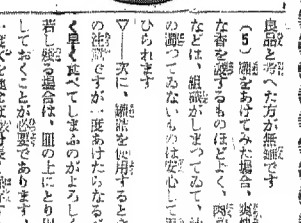 良品と考へた方が無難です
（５）罐をあけてみた場合、
な香を渡するものほどよく、肉
などは、組織がしまつてゐて、
の濁つてゐないものは安心して
ひられます
▽――次に、罐詰を使用すると
の注意ですが、一度あけたらなるが
く早く食べてしまふのがよろしく
若し残る場合は、皿の上にとり
しておくことが必要であります。